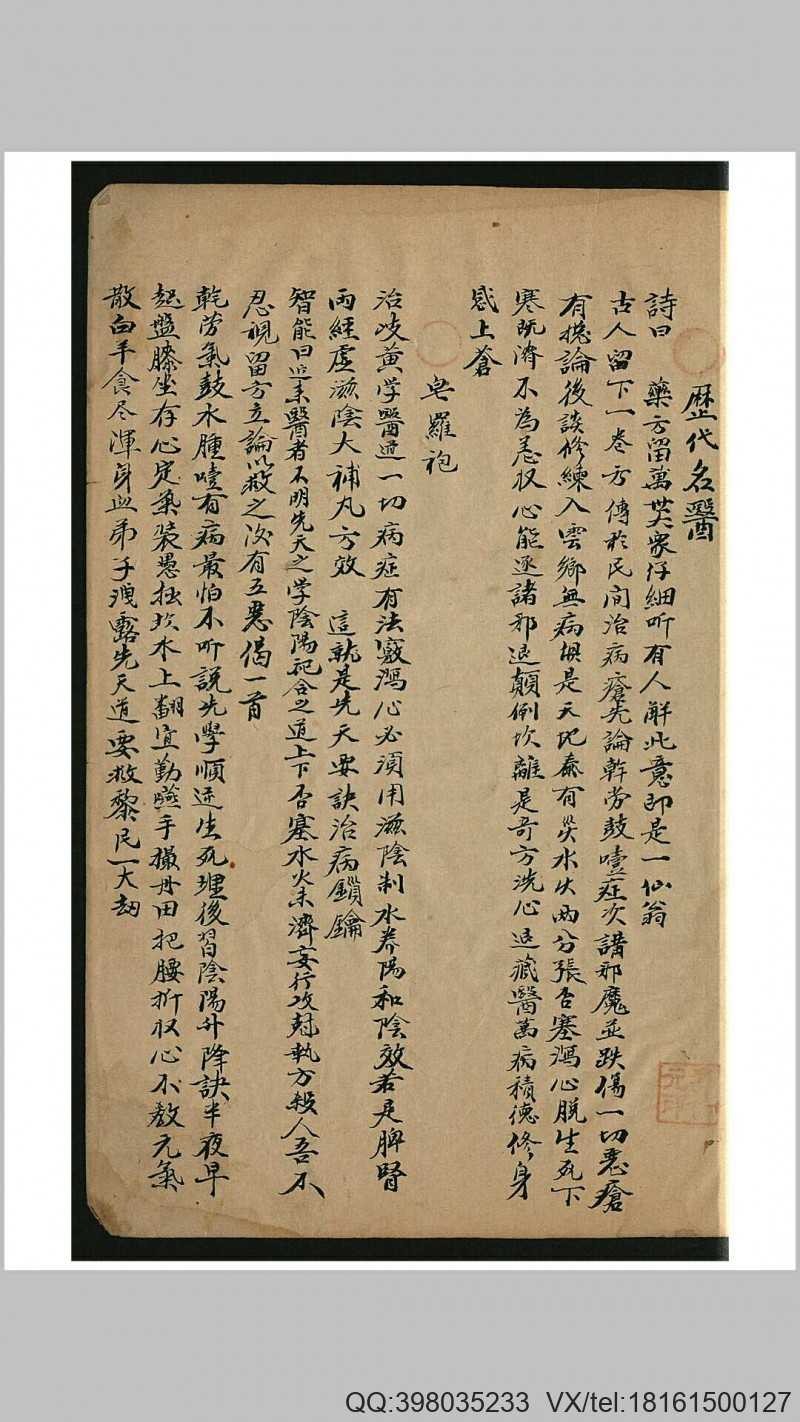 歷代名醫
詩曰 藥方留萬世眾仔細听有人解此意即是一仙翁
古人留下一卷方傳於民间治病瘡先論幹劳鼓噎症次講邪魔並跌傷一切惡瘡
有總論後談修練入雲鄉無病俱是天地泰有災水火兩分張否塞瀉心脱生死下
寒既濟不為恙收心能逐諸邪退顛倒坎離是奇方洗心退藏醫萬病積德修身
感上蒼
皂羅袍
治岐黃学醫道一切病症有法竅瀉心必須用滋陰制水养陽和陰效若是脾腎
兩經虛滋陰大補丸方效 這就是先天要訣治病鎖鑰
智能曰近来醫者不明先天之学陰陽配合之道上下否塞水火未濟妄行攻尅執方殺人吾不
忍視留方立論以救之沒有五惡偈一首
乾劳氣鼓水腫噎有病最怕不听説先學順逆生死理後習陰陽升降訣半夜早
起盤膝坐存心定氣装愚拙坎水上翻宜勤嚥手撮丹田把腰折收心不教元氣
散白手食尽渾身血弟子洩露先天道要救黎民一大劫
QQ:398035233 VX/tel:18161500127